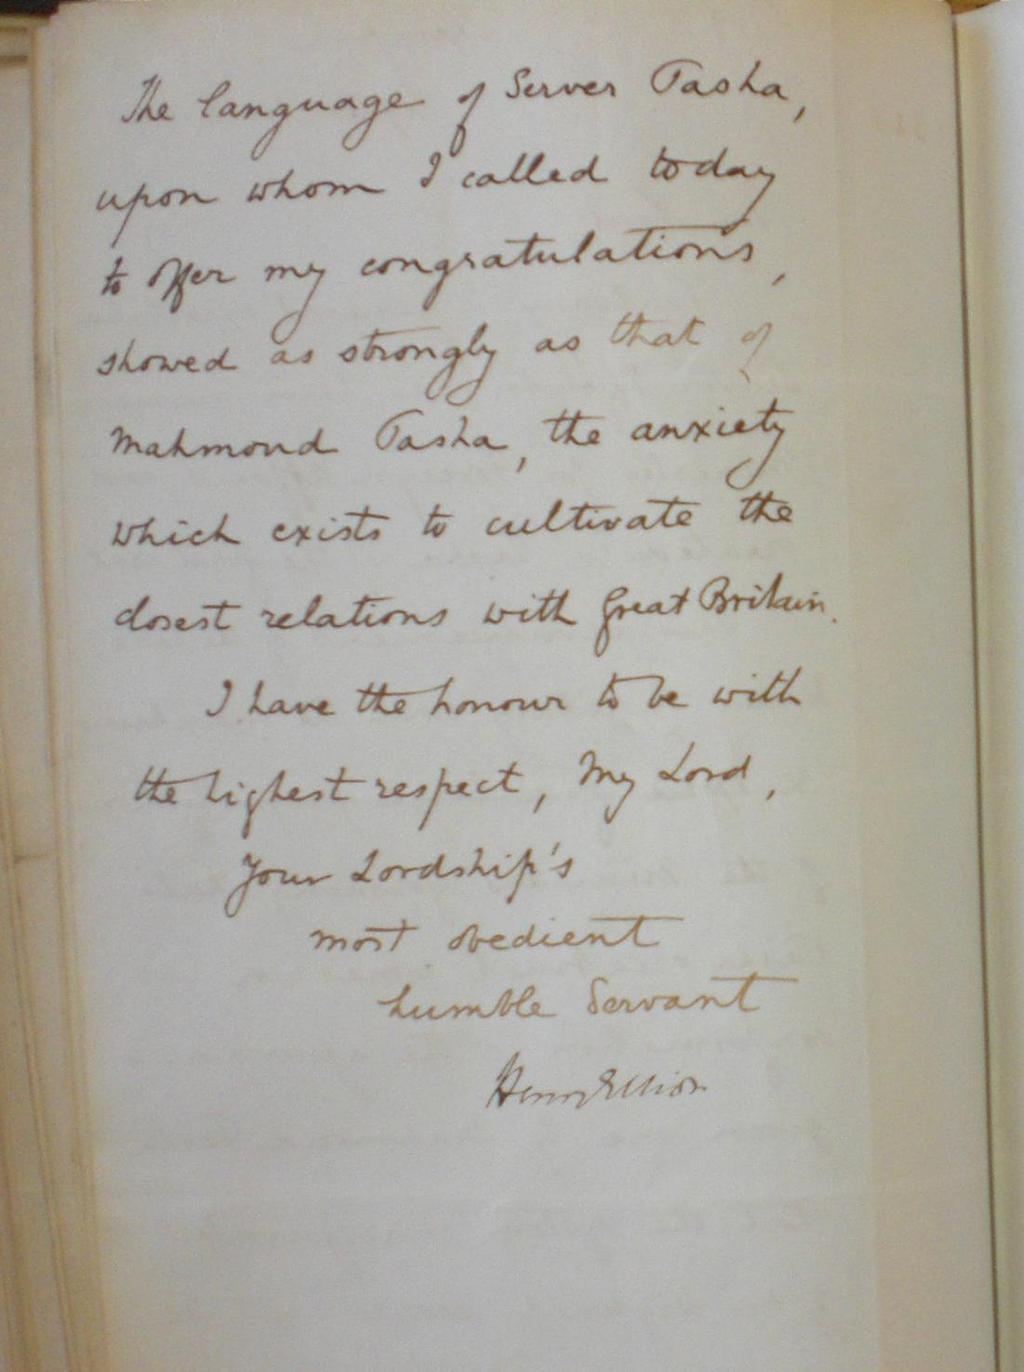 The language of Server Pasha,
upon whom I called today
to offer my congratulations,
showed as strongly as that of
Mahmoud Pasha, the anxiety
which exists to cultivate the
closest relations with Great Britain.
I have the honour to be with
the highest respect, My Lord,
Your Lordship's
most obedient
humble Servant
Henry Elliot